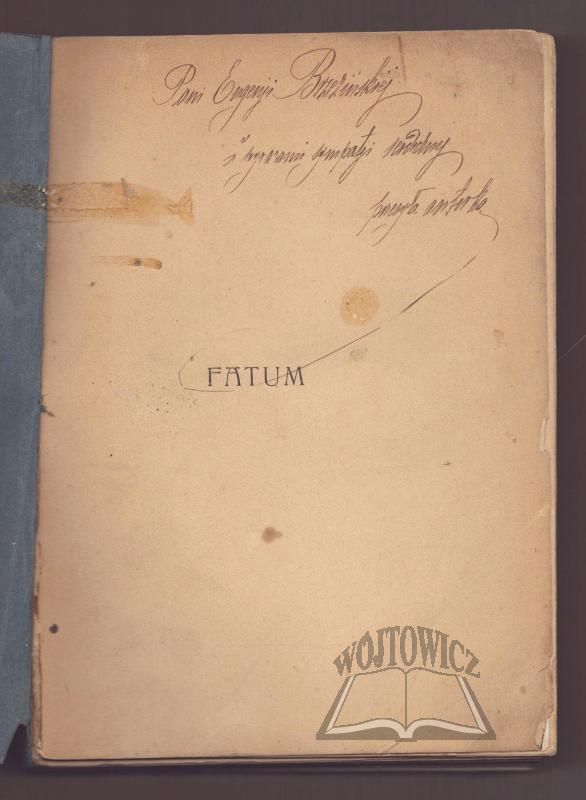 Pani Eugenji Brzezińskiej
z wyrazami sympatji serdecznej
przesyła autorka
FATUM
WÓJTOWICZ